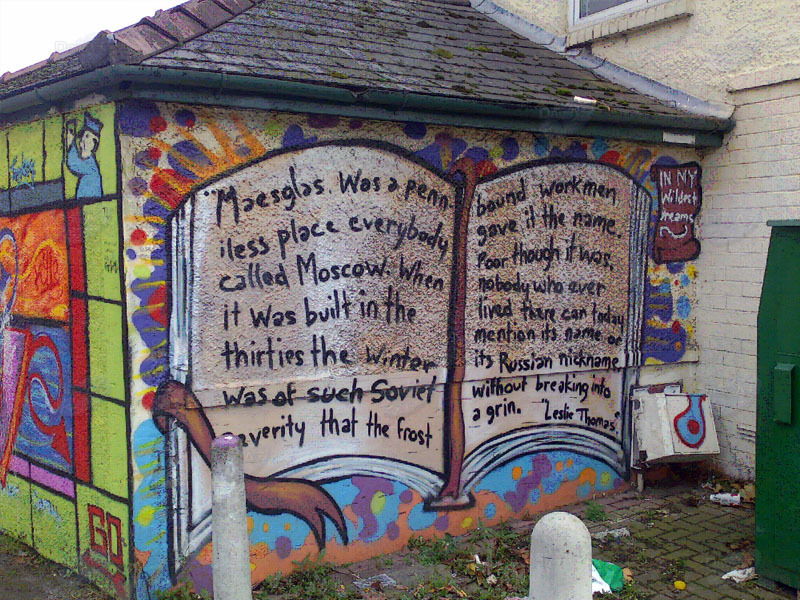 "Maesglas. Was a penn
iless place everybody
called Moscow. When
it was built in the
thirties the winter
was of such Soviet
severity that the frost
bound workmen
gave it the name.
Poor though it was,
nobody who ever
lived there can today
mention its name or
its Russian nickname
without breaking into
a grin. "Leslie Thomas"
IN NY
Wildest
dreams
GO